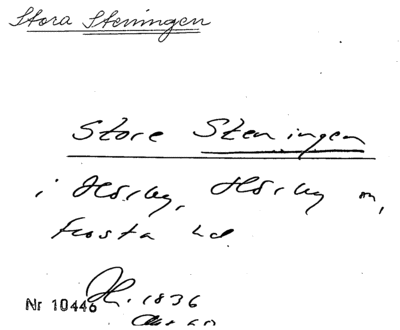 Stora Steningen
Store Steningen
i Hörby, Hörby m,
Frosta hd.
1836
Nr 10446